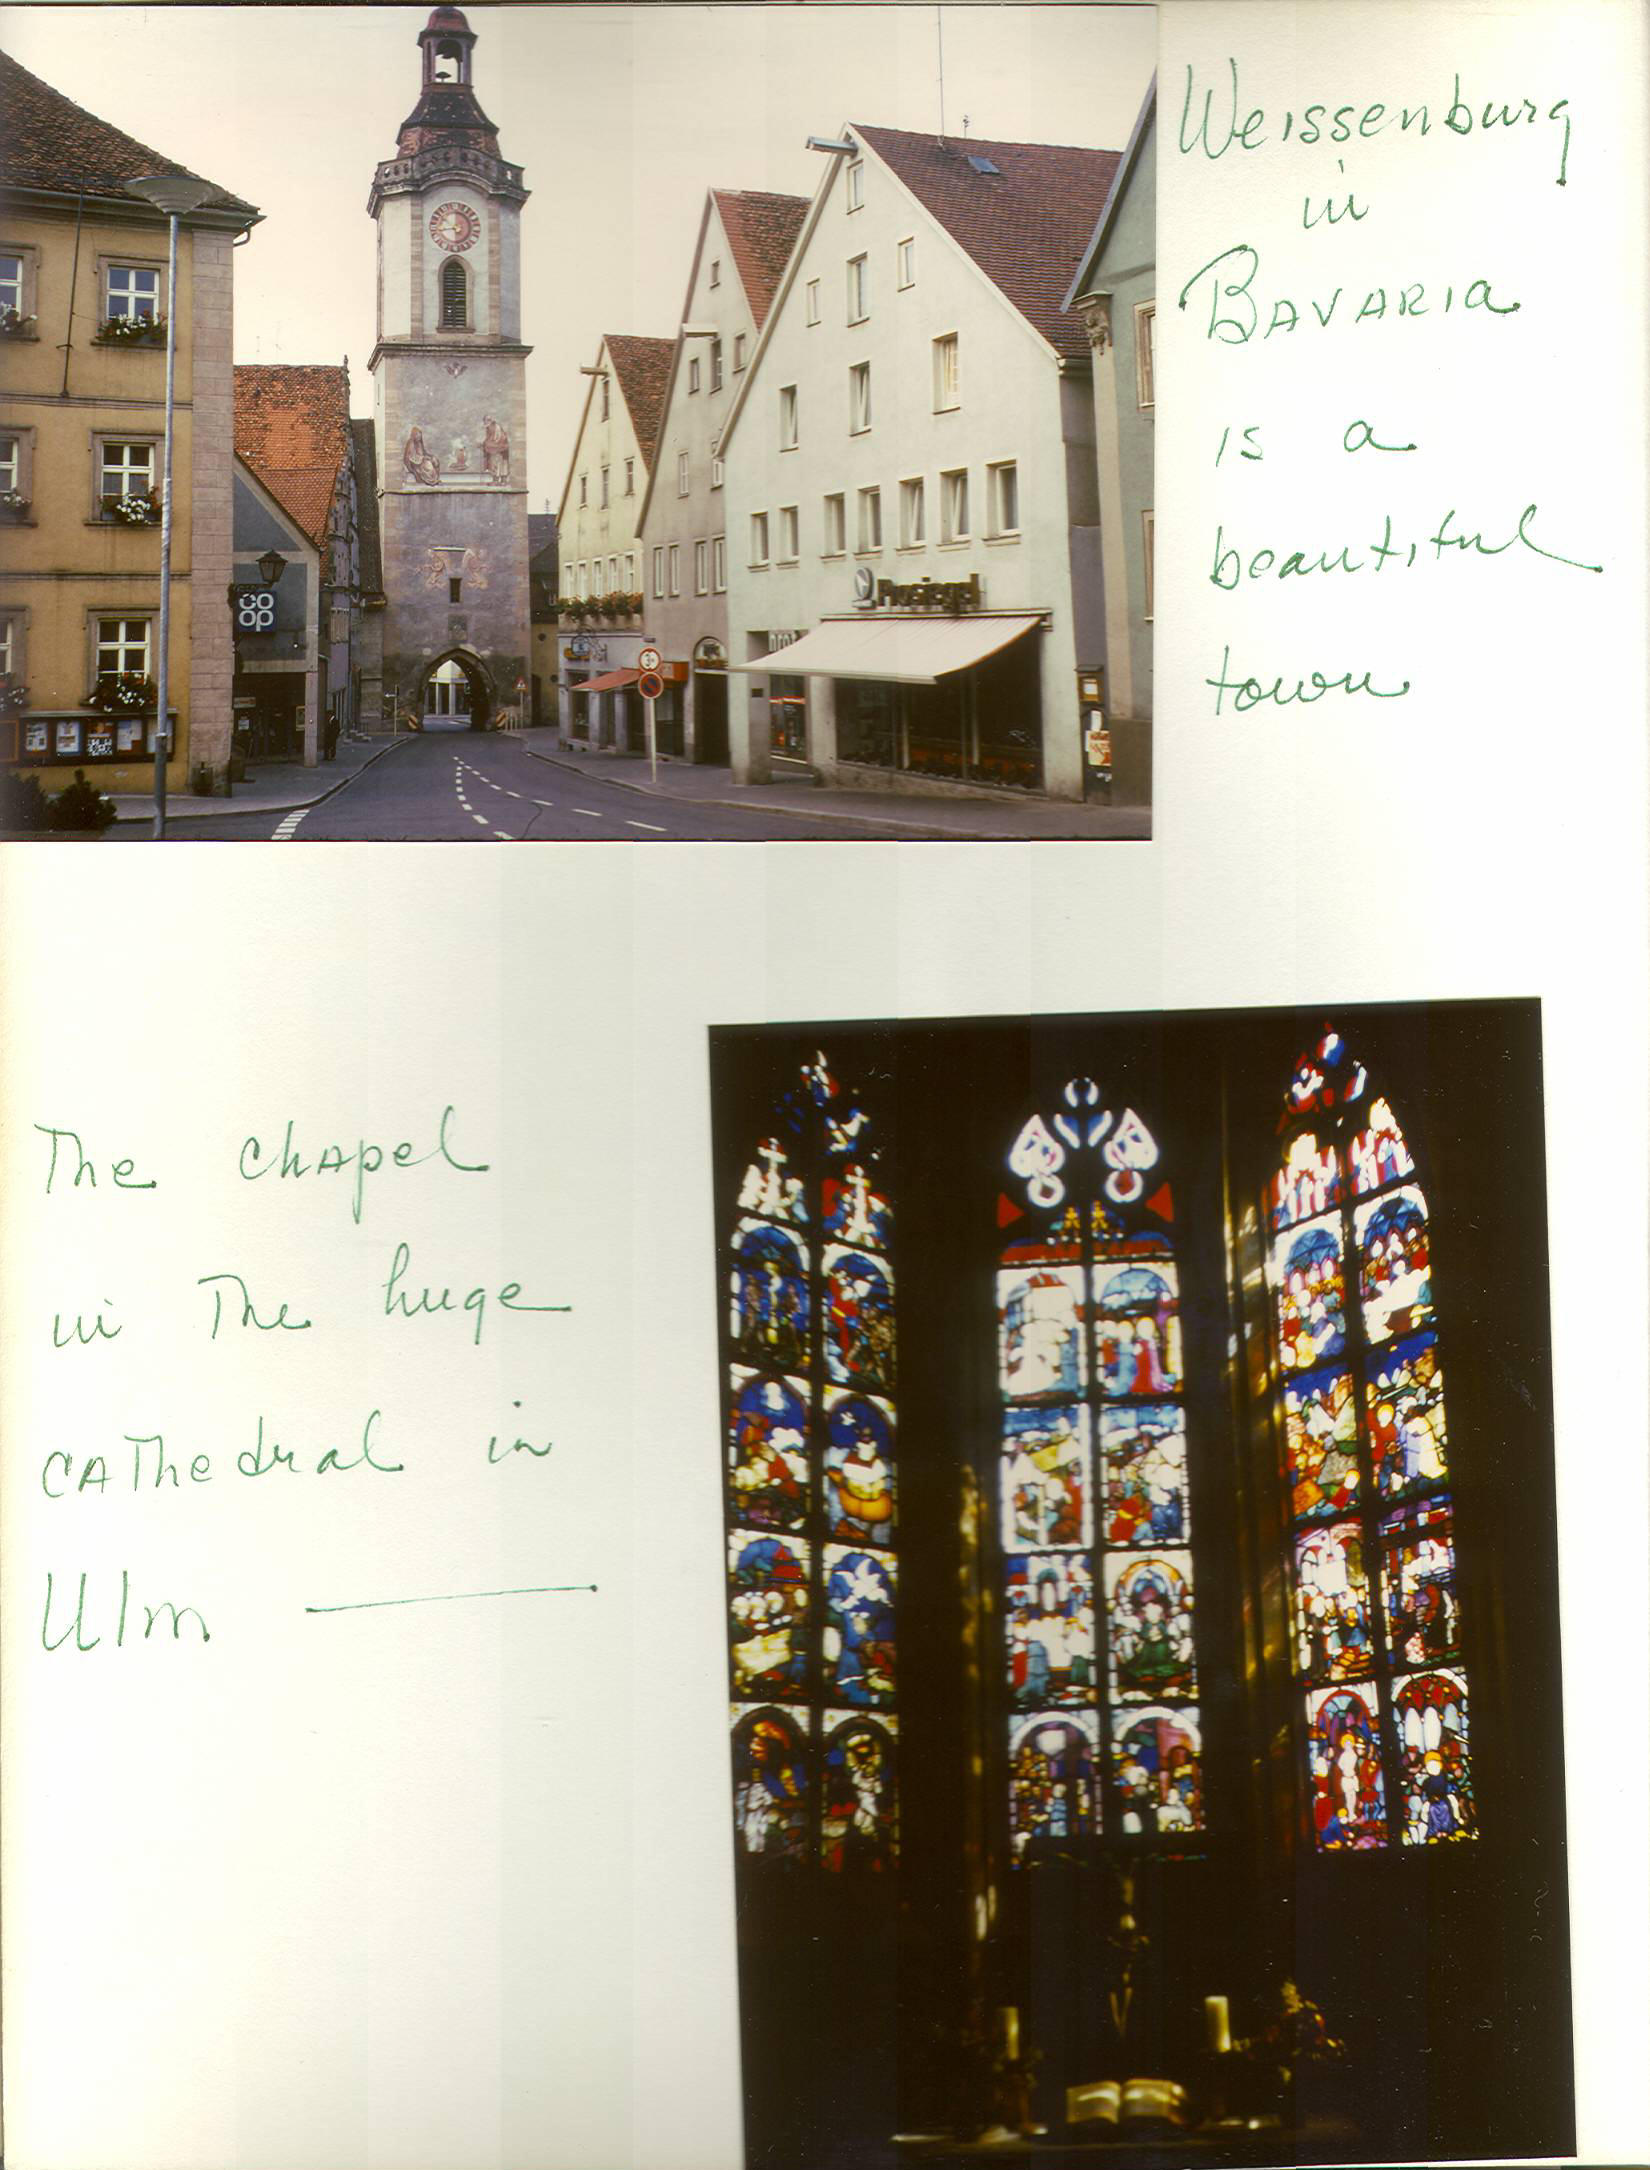 Weissenburg
in
BAVARIA
is a
beautiful
town
CO
OP
Prosiegel
The chapel
in The huge
cathedral in
Ulm